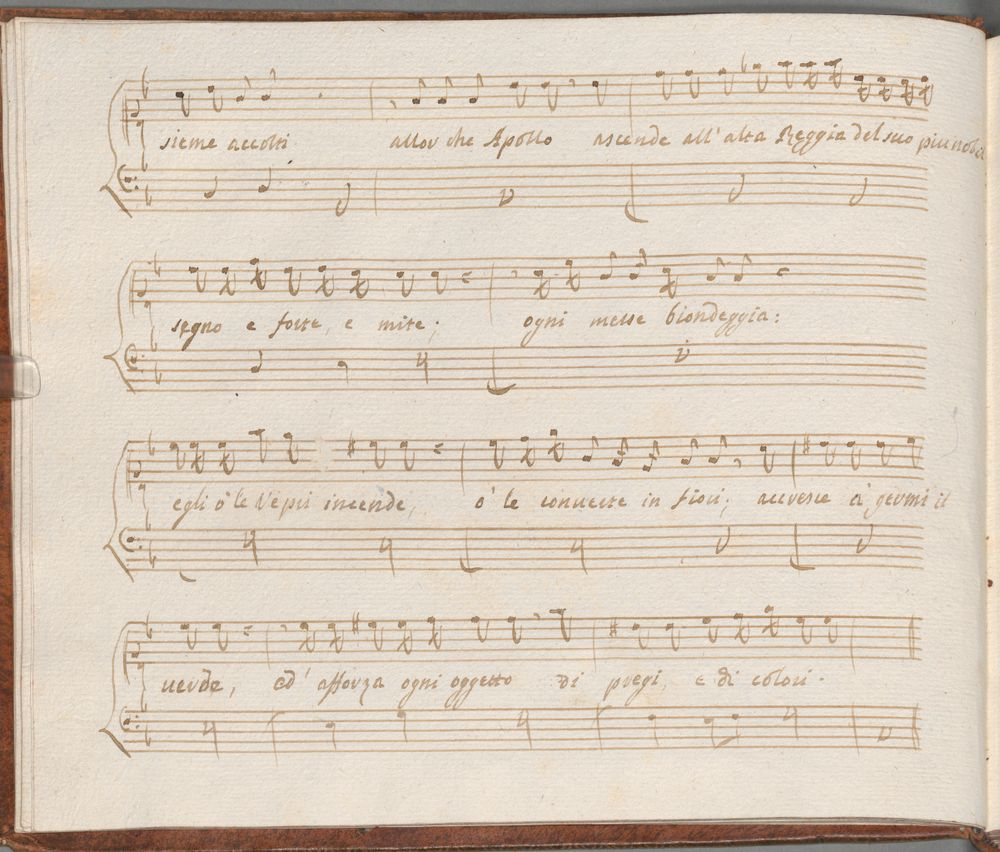 sieme accolti allor che Apollo ascende all'alta Reggia del suo piu nobil
segno e forte, e mite; ogni messe biondeggia:
egli ò le Vepri incende, ò le conuerte in fiori; accresce à germi il
uerde, ed' afforza ogni oggetto di pregi, e di colori.